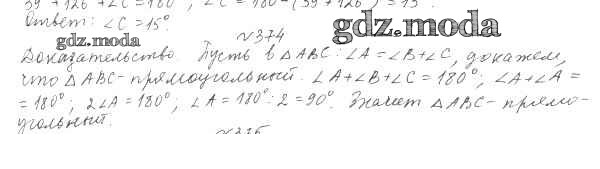 39°+126°+∠C=180°; ∠C=180°-(39°+126°)=15°
Ответ: ∠C=15°.
№374
gdz.moda
gdz.moda
Доказательство. Пусть в △ABC: ∠A=∠B+∠C, докажем,
что △ABC-прямоугольный. ∠A+∠B+∠C=180°; ∠A+∠A=
=180°; 2∠A=180°; ∠A=180°:2=90°. Значит △ABC-прямо-
угольный.